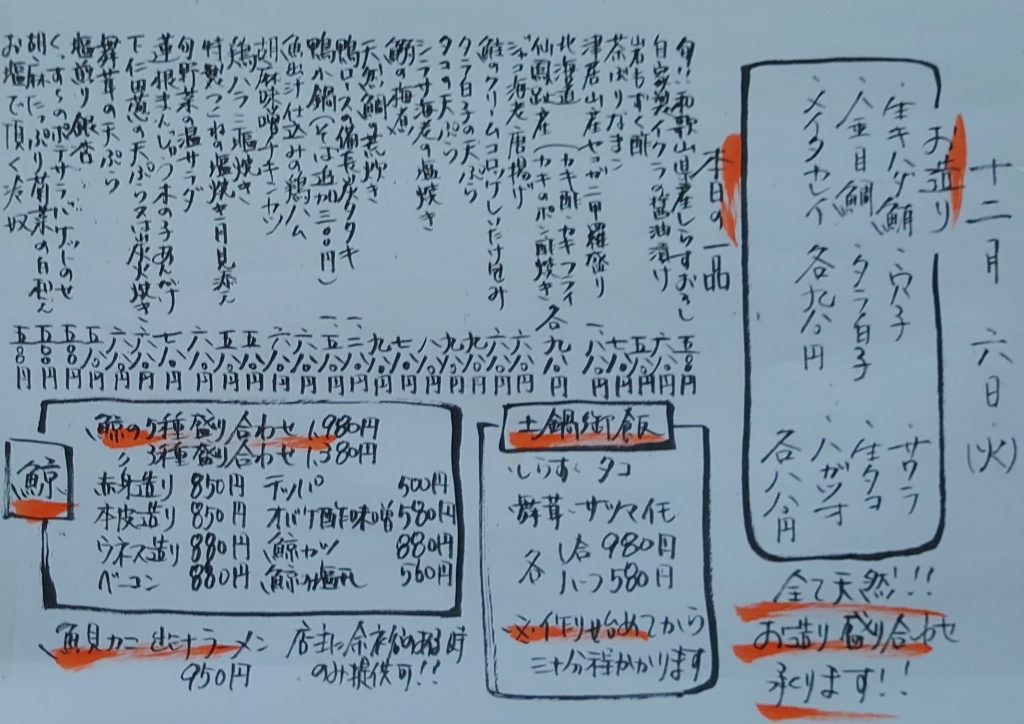 十二月 六日 (火)
お造り
・生キハダ鮪 ・穴子 ・サワラ
・金目鯛 ・タラ白子 ・生タコ
・メイタカレイ ・ハガツオ
各九八〇円 各八八〇円
全て天然!!
お造り盛り合わせ
承ります!!
本日の一品
旬!!和歌山県産しらすおろし 五八〇円
自家製イクラの醤油漬け 六八〇円
岩もずく酢 五八〇円
茶ぶりなまこ 七八〇円
津居山産セコガニ甲羅盛り 一、八八〇円
北海道 (カキ酢・カキフライ
仙鳳趾産 (カキのポン酢焼き 各九八〇円
ジャコ海老唐揚げ 六八〇円
鮭のクリームコロッケしいたけ包み 六八〇円
タラ白子の天ぷら 九八〇円
タコの天ぷら 八八〇円
シラサ海老の塩焼き 九八〇円
鰯の梅煮 七八〇円
天然鯛煮炊き 九八〇円
鴨ロースの備長炭タタキ
鴨小鍋(そば追加三〇〇円)
魚出汁仕込みの鶏ハム 六八〇円
胡麻味噌チキンカツ 六八〇円
鶏ハラミ塩焼き 五八〇円
特製つくねの塩焼き月見添え 六八〇円
旬野菜の温サラダ 八八〇円
蓮根まんじゅう木の子あんかけ 七八〇円
下仁田葱の天ぷら又は炭火焼き 六八〇円
舞茸の天ぷら 六八〇円
塩煎り銀杏 五八〇円
くんすらのポテサラバゲットのせ 五八〇円
胡麻たっぷり菊菜の白和え 五八〇円
お塩で頂く冷奴 五八〇円
土鍋御飯
・しらす・タコ
・舞茸・サツマイモ
各 1合 980円
ハーフ 580円
※作り始めてから
三十分程かかります
鯨
鯨の5種盛り合わせ 1,980円
〃 3種盛り合わせ 1,380円
赤身造り 850円 テッパ 500円
本皮造り 850円 オバケ酢味噌 580円
ウネス造り 880円 鯨カツ 880円
ベーコン 880円 鯨の塩 560円
魚貝カニ出汁ラーメン 店主に余裕の有る時
950円 のみ提供可!!